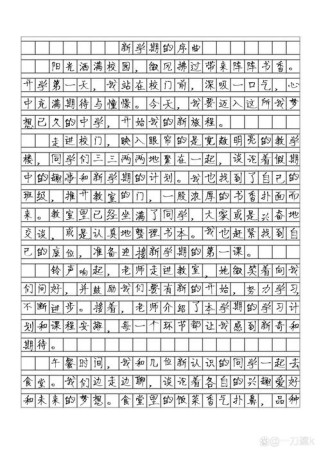 新学期的序曲
阳光洒满校园，微风拂过带来阵阵书香。
开学第一天，我站在校门前，深吸一口气，心
中充满期待与憧憬。今天，我要迈入这所我梦
想已久的中学，开始我的新旅程。
走进校门，映入眼帘的是宽敞明亮的教学
楼，同学们三三两两地聚在一起，谈论着假期
中的趣事和新学期的计划。我也找到了自己的
班级，推开教室的门，一股浓厚的书香扑面而
来。教室里已经坐满了同学，大家或是兴奋地
交谈，或是认真地整理书本。我也赶紧找到自
己的座位，准备迎接新学期的第一课。
铃声响起，老师走进教室，她微笑着向我
们问好，并鼓励我们要在新的开始，努力学习，
不断进步。接着，老师介绍了本学期的学习计
划和课程安排，每一个环节都让我感到新奇和
期待。
午餐时间，我和几位新认识的同学一起去
食堂。我们边走边聊，谈论着各自的兴趣爱好
和未来的梦想。食堂里的饭菜香气扑鼻，品种